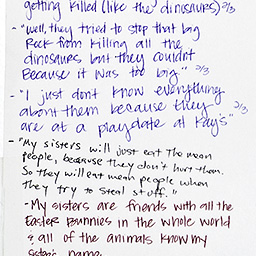 getting killed (like the dinosaurs) 2/3
- "well, they tried to stop that big
Rock from killing all the
dinosaurs but they couldnt
Because it was too big" 2/3
- "I just don't know everything
about them because they 2/3
are at a playdate at Kay's"
- "My sisters will just eat the mean
people, because they don't hurt them.
So they will eat mean people when
they try to steal stuff."
- My sisters are friends with all the
Easter Bunnies in the whole world
& all of the animals know my
sister's name